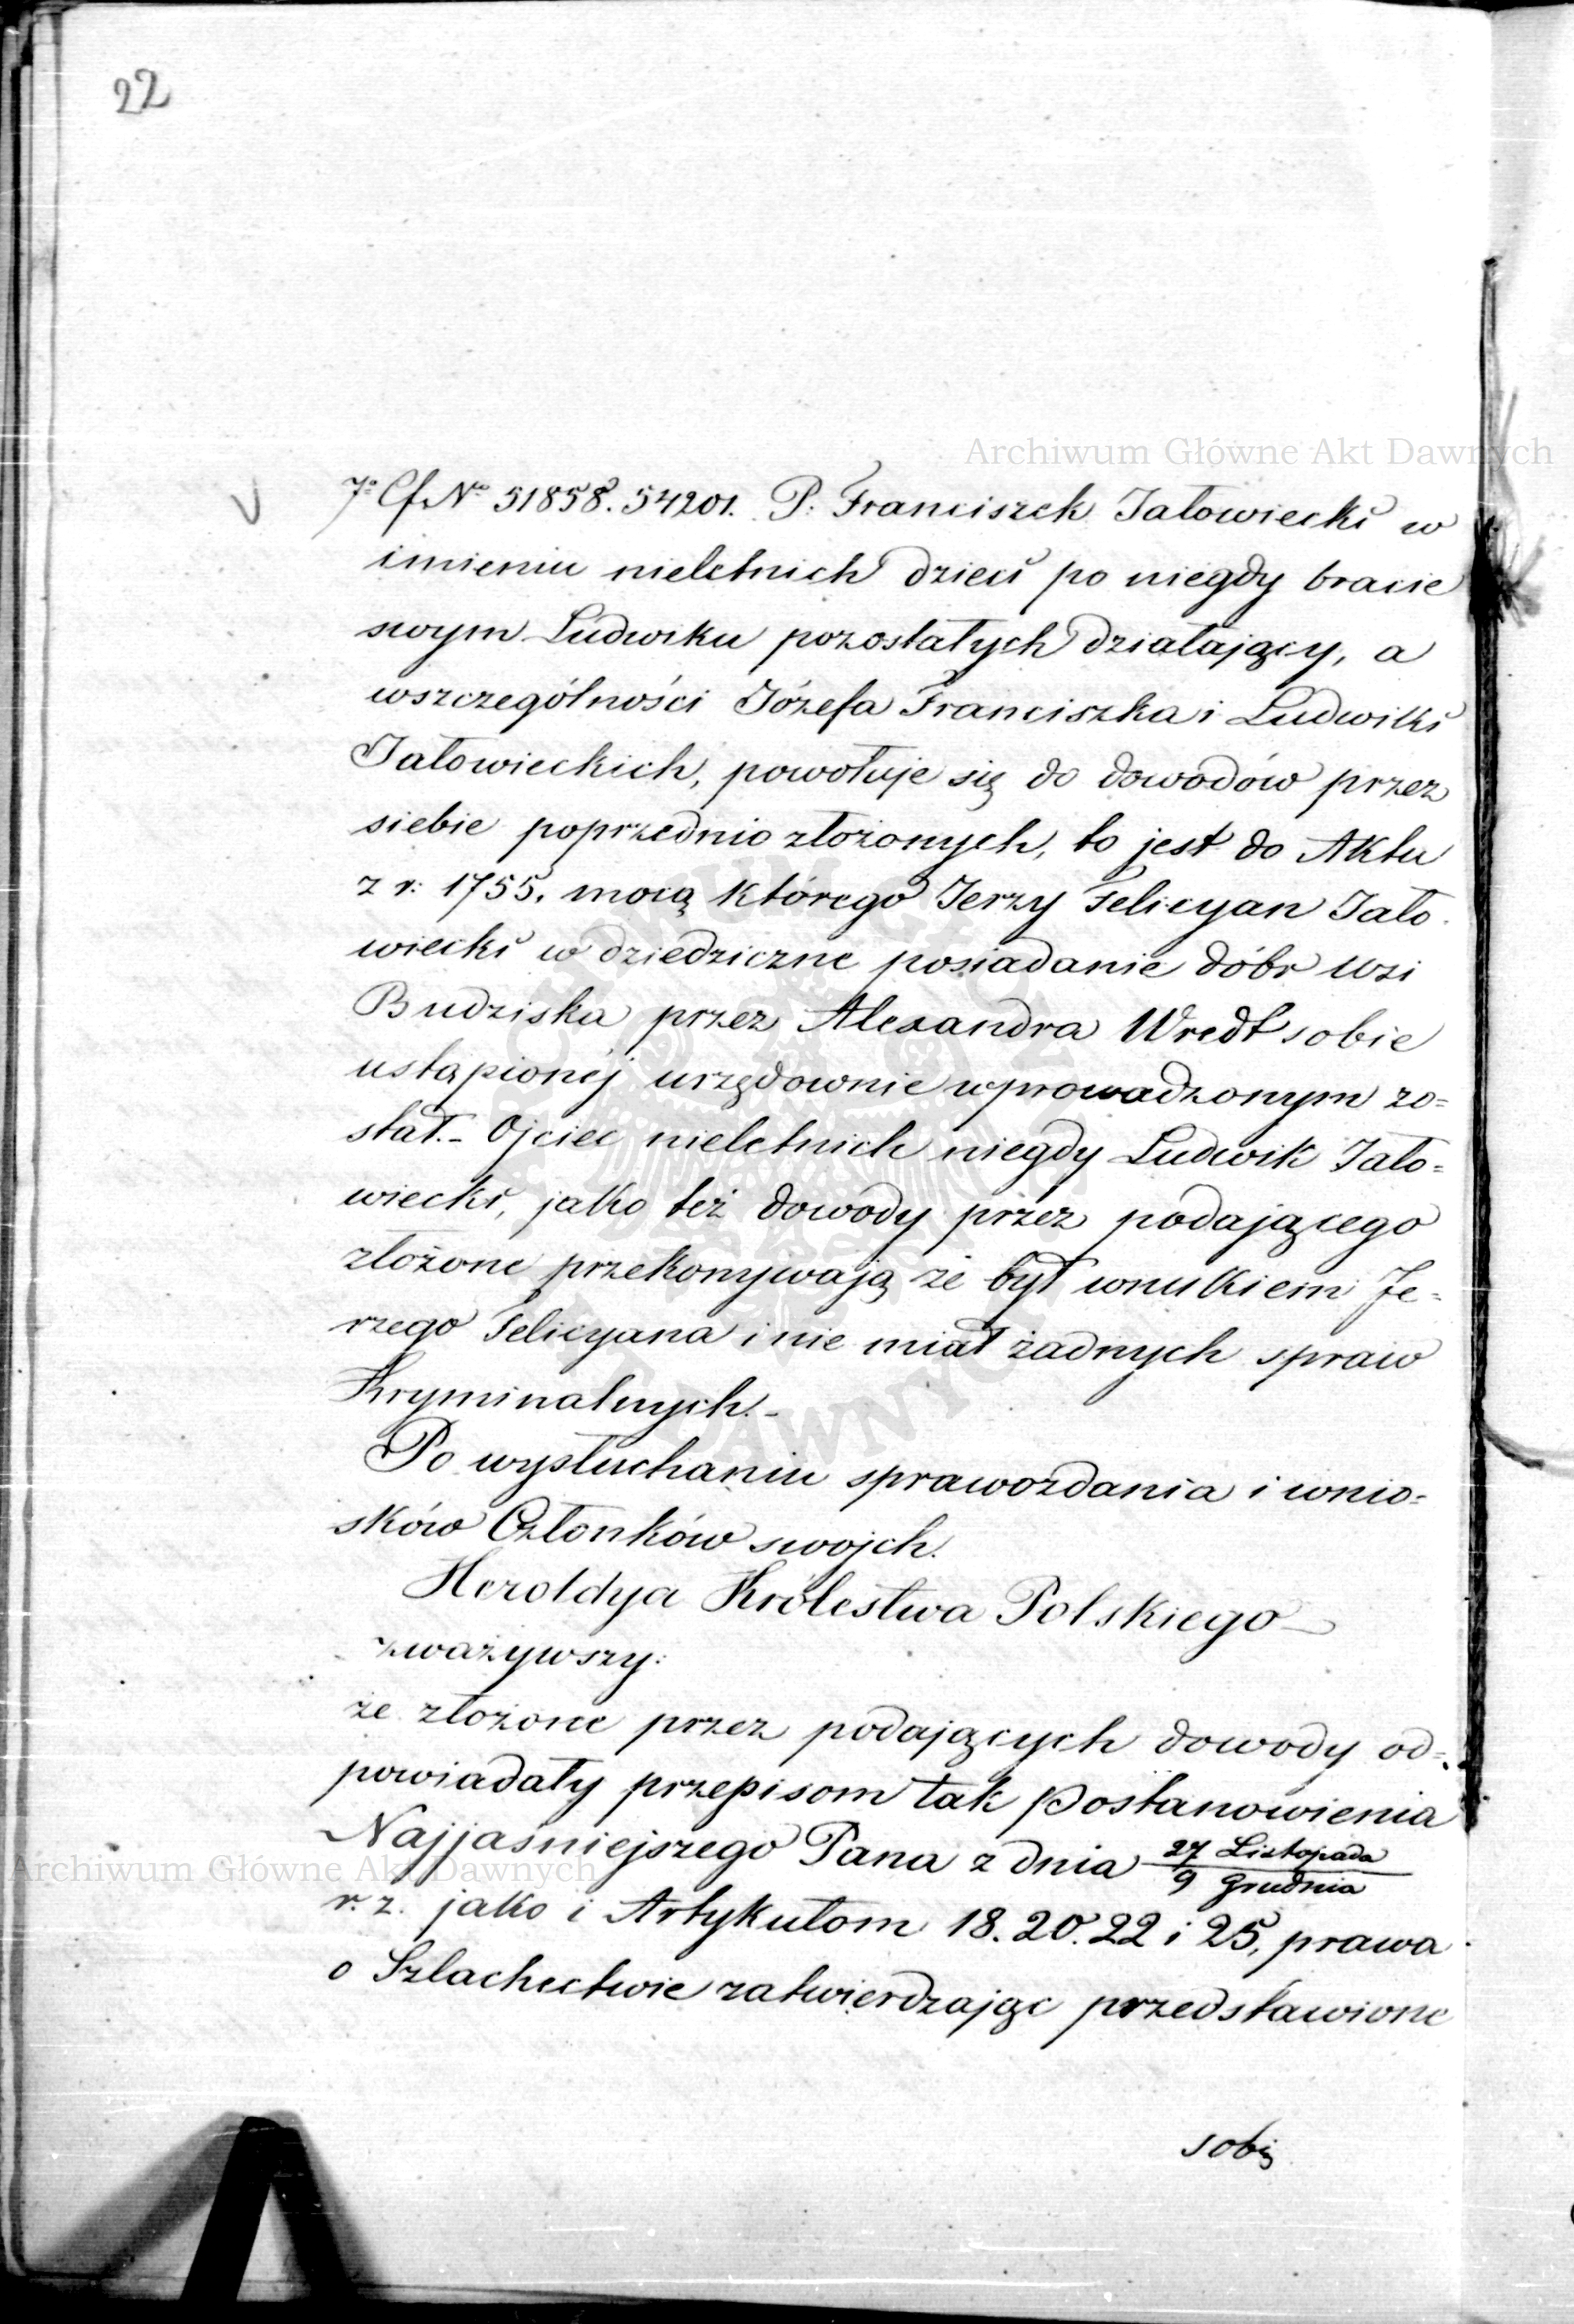 22
Archiwum Główne Akt Dawnych
7º Cf Nº 51858. 54201. P. Franciszek Jałowiecki w
imieniu nieletnich dzieci po niegdy bracie
swym Ludwiku pozostałych działający, a
wszczególności Józefa Franciszka i Ludwiki
Jałowieckich, powołuje się do dowodów przez
siebie poprzednio złożonych, to jest do Aktu
z r: 1755. mocą którego Jerzy Felicyan Jało-
wiecki w dziedziczne posiadanie dóbr wsi
Budziska przez Alexandra Wredt sobie
ustąpionéj urzędownie wprowadzonym zo=
stał.- Ojciec nieletnich niegdy Ludwik Jało=
wiecki, jako też dowody przez podającego
złożone przekonywają że był wnukiem Je=
rzego Felicyana i nie miał żadnych spraw
Kryminalnych.-
Po wysłuchaniu sprawozdania i wnio=
sków Członków swojch.
Heroldya Królestwa Polskiego
zważywszy:
że złożone przez podających dowody od=
powiadały przepisom tak Postanowienia
Najjaśniejszego Pana z dnia 27 Listopada
9 Grudnia
Archiwum Główne Akt Dawnych
r. z. jako i Artykułom 18. 20. 22 i 25, prawa
o Szlachectwie zatwierdzając przedstawione
sobię